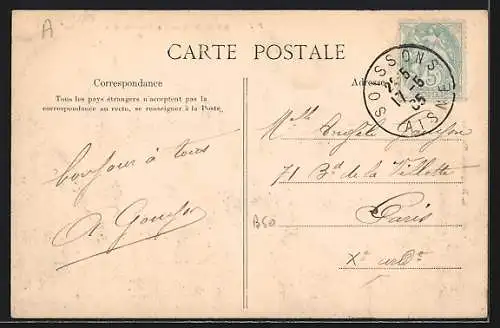 A
CARTE POSTALE
Correspondance
Tous les pays étrangers n'acceptent pas la
correspondance au recto, se renseigner à la Poste.
bonjour à tous
A.
Adresse
SOISSONS
AISNE
5
Mlle Angèle
71 Bd de la Villette
Paris
Xe arrdt
B50